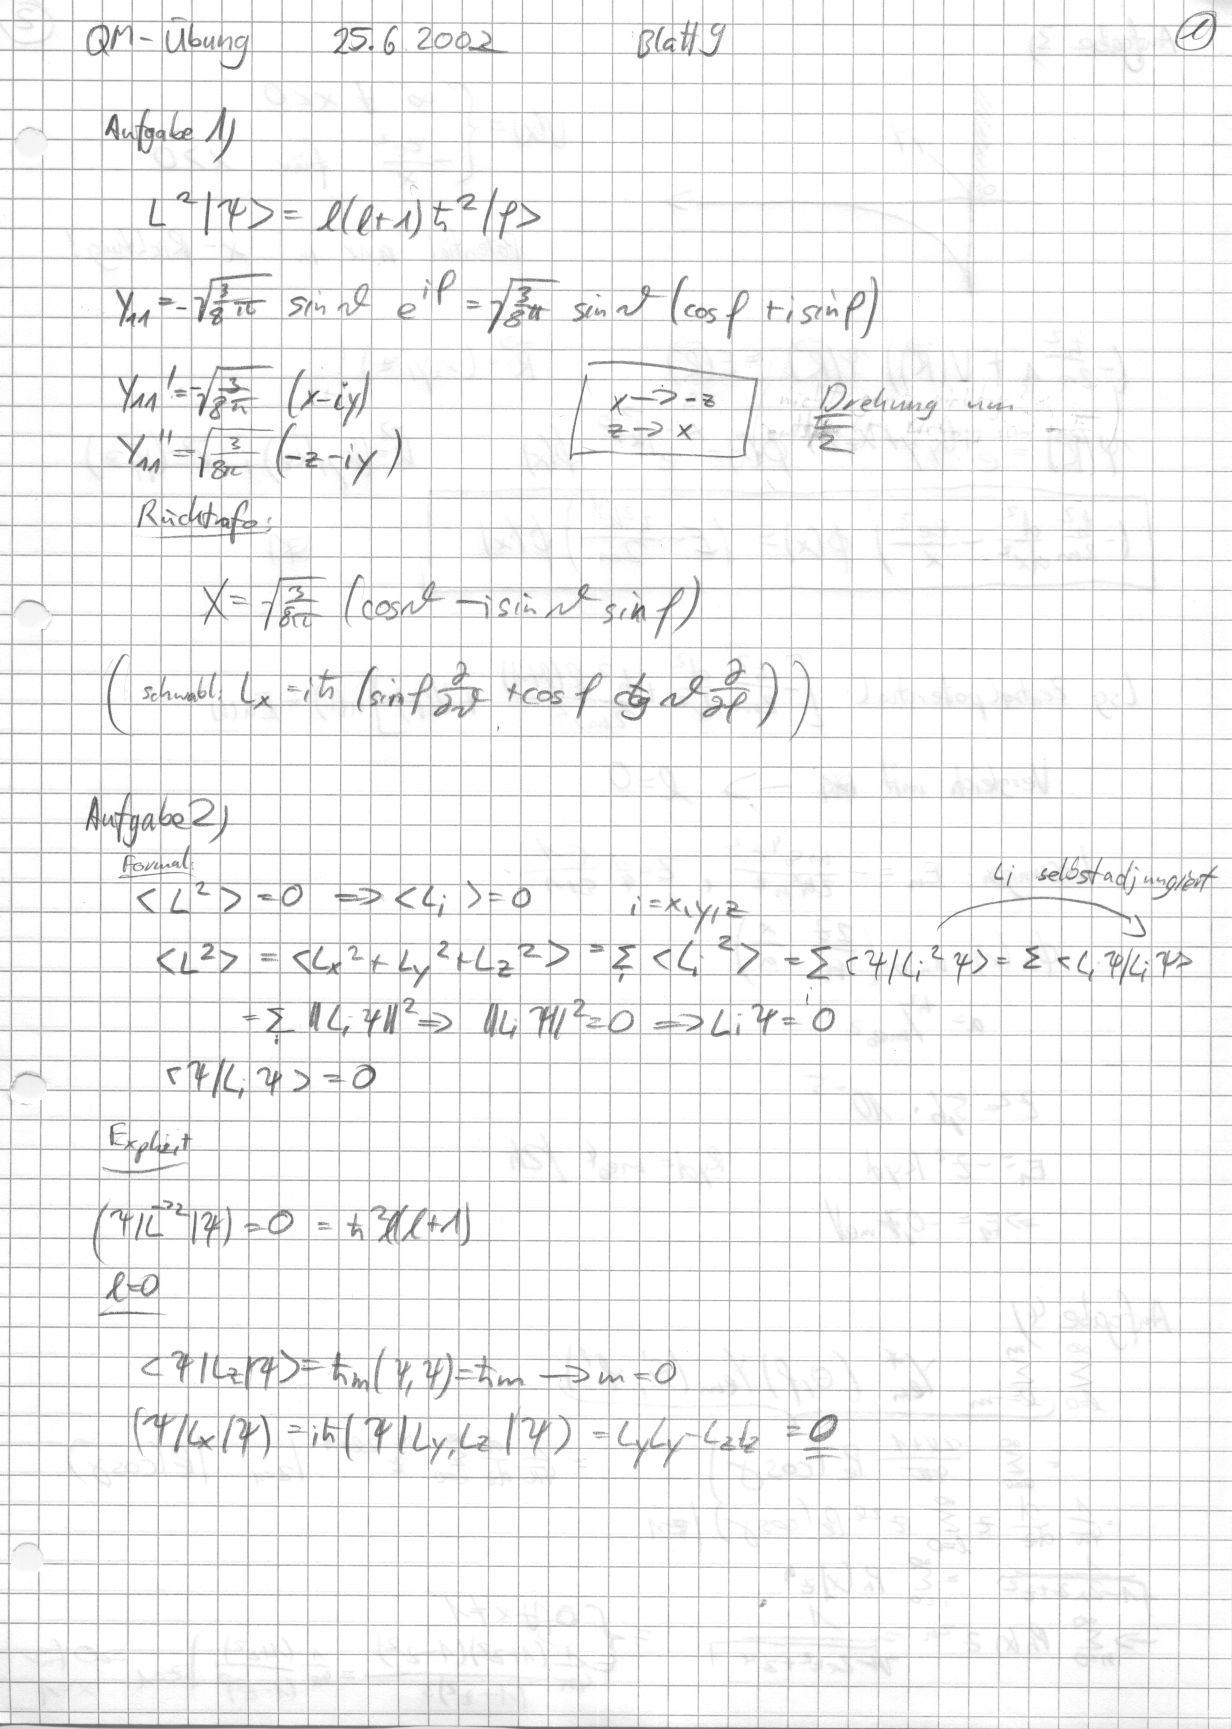 QM-Übung 25.6.2002 Blatt 9 ①
Aufgabe 1)
L²|Ψ> = ℓ(ℓ+1)ħ²|φ>
Y₁₁ = -√(3/8π) sinϑ e^{iφ} = √(3/8π) sinϑ (cosφ + i sinφ)
Y₁₁' = -√(3/8π) (x-iy)
x → -z
z → x
Drehung um π/2
Y₁₁'' = √(3/8π) (-z-iy)
Rücktrafo:
X = √(3/8π) (cosϑ - i sinϑ sinφ)
(schwabl: Lx = iħ (sinφ ∂/∂ϑ + cosφ ctg ϑ ∂/∂φ))
Aufgabe 2)
Formal:
<L²> = 0 ⇒ <Li> = 0 i = x,y,z
Li selbstadjungiert
<L²> = <Lx² + Ly² + Lz²> = Σi <Li²> = Σi <Ψ|Li²Ψ> = Σ <LiΨ|LiΨ>
= Σi ||LiΨ||² ⇒ ||LiΨ||² = 0 ⇒ LiΨ = 0
<Ψ|LiΨ> = 0
Explizit
(Ψ|L⃗²|Ψ) = 0 = ħ²ℓ(ℓ+1)
ℓ=0
<Ψ|Lz|Ψ> = ħm(Ψ,Ψ) = ħm → m=0
(Ψ|Lx|Ψ) = iħ(Ψ|Ly,Lz|Ψ) = LyLy - LzLz = 0